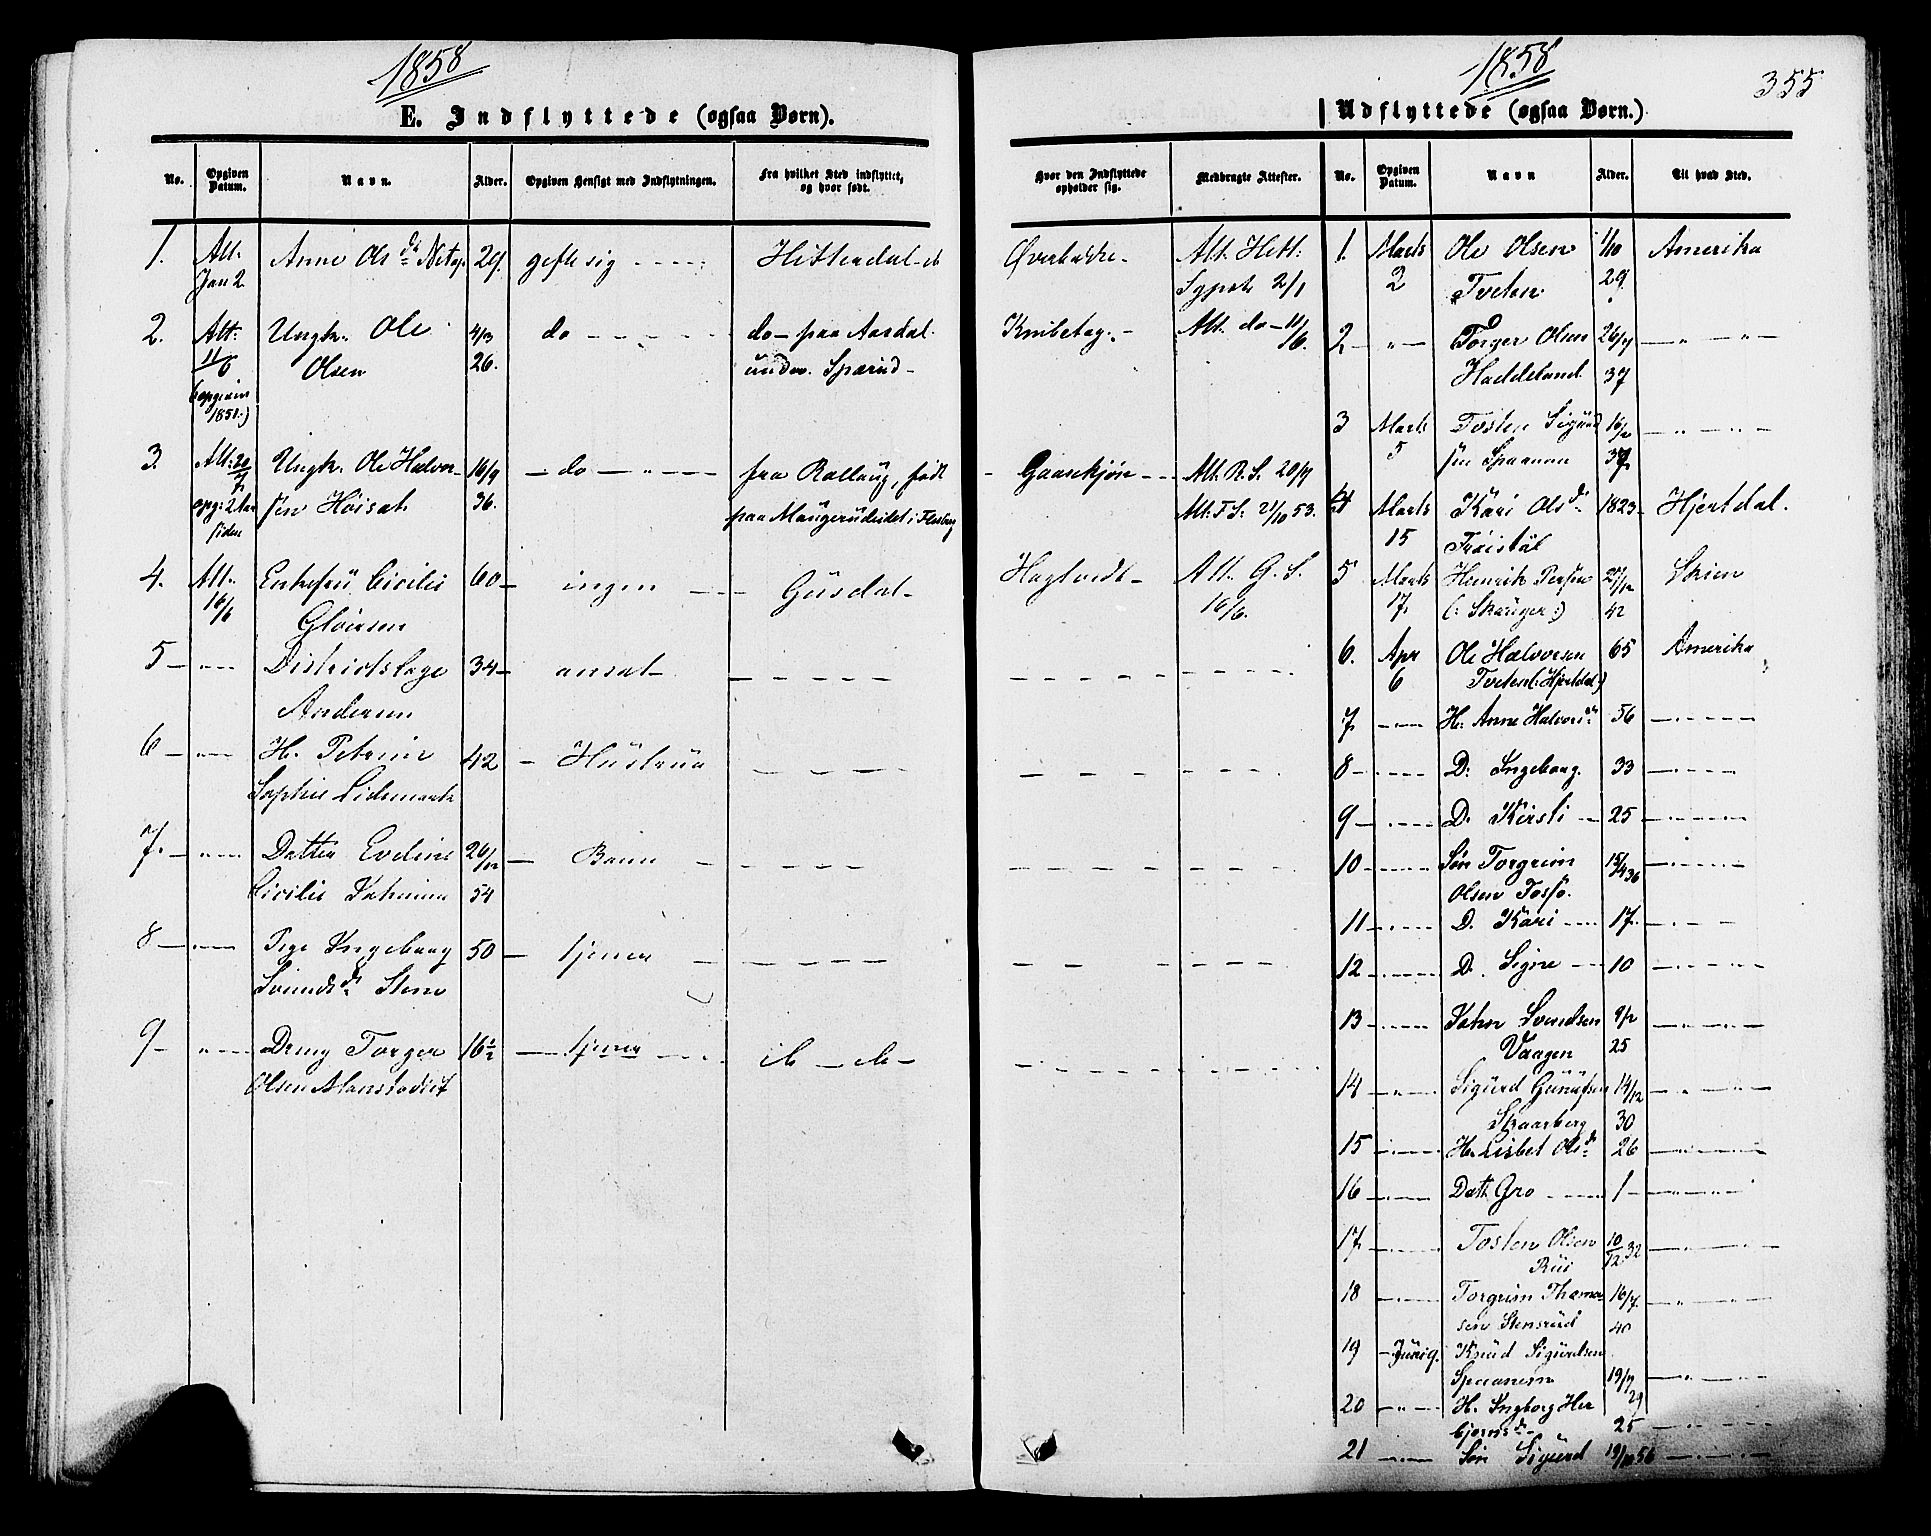 1858
E. Indflyttede (ogsaa Børn).
No. Opgiven Datum. Navn. Alder. Opgiven Hensigt med Indflytningen. Fra hvilket Sted indflyttet, og hvor født. Hvor den Indflyttede opholder sig. Medbragte Attester.
1. Att. Anne Olsdr 29. gifte sig Hitterdal Att. Hitt:
Jan 2 Sgpret 2/1
2. Att: Ungk. Ole 4/3 do do - paa Aasdal Knibetag. Att. do - 11/6.
11/6 Olsen 26. under Spærud
(opgiven
1851.)
3. Att: 20/9 Ungk. Ole Halvor- 16/9 do fra Rollaug, født Gaaskjøn Att. R. S. 20/9
opg: 2 Aar sen Høisæt 36. paa Maugerudeidet i Flesberg Att. F. S. 21/10 53.
siden
4. Att. Enkefrü Cicilie 60 ingen Güsdal Hagtvedt Att. G. S.
16/6 Gløersen 16/6.
5 Districtslæge 34 ansat
Andersen
6 H. Petrine 42 Hüstrüe
Sophie
7. Datter Eveline 26/12 Barn
Cicilie 54
8 Pige Ingeborg 50 tjener
Svendsdr Stene
9 Dreng Torger 16½ tjener
Olsen
1858
355
Udflyttede (ogsaa Børn.)
No. Opgiven Datum. Navn Alder. Til hvad Sted.
1. Marts Ole Olsen 1/10 Amerika
2 Tveten 29
2 Torger Olsen 26/7
Haddeland 37
3 Marts Tosten Sigürd 16/2
5 sen Spaanem 37
4 Marts Kari Olsdr 1823 Hjertdal.
15 Frøistøl
5 Marts Henrik Persen 27/12 Skien
17. (: Skrüger:) 42
6. Apr Ole Halvorsen 65 Amerika
6 Tveten (: Hjertdal)
7 H. Anne Halvorsdr 56
8 D. Ingeborg. 33
9 D. Kirsti 25
10 Søn Torgrim 15/4 36
Olsen Fosso.
11 D. Kari 17.
12 D. Signe 10
13 John Svendsen 9/2
Vaagen 25
14 Sigürd Günüfsen 14/12
Skaarberg 30
15 H. Lisbet Olsdr 26
16 Datt. Gro 1
17 Tosten Olsen 10/12 32
Rüi
18 Torgrim Thomas- 16/7
sen Stensrüd 40
19 Juni 9. Knüd Sigürdsen
Spaanem 19/7 29
20 H. Ingborg Her
bjørnsdr 25
21 Søn Sigurd 19/10 56